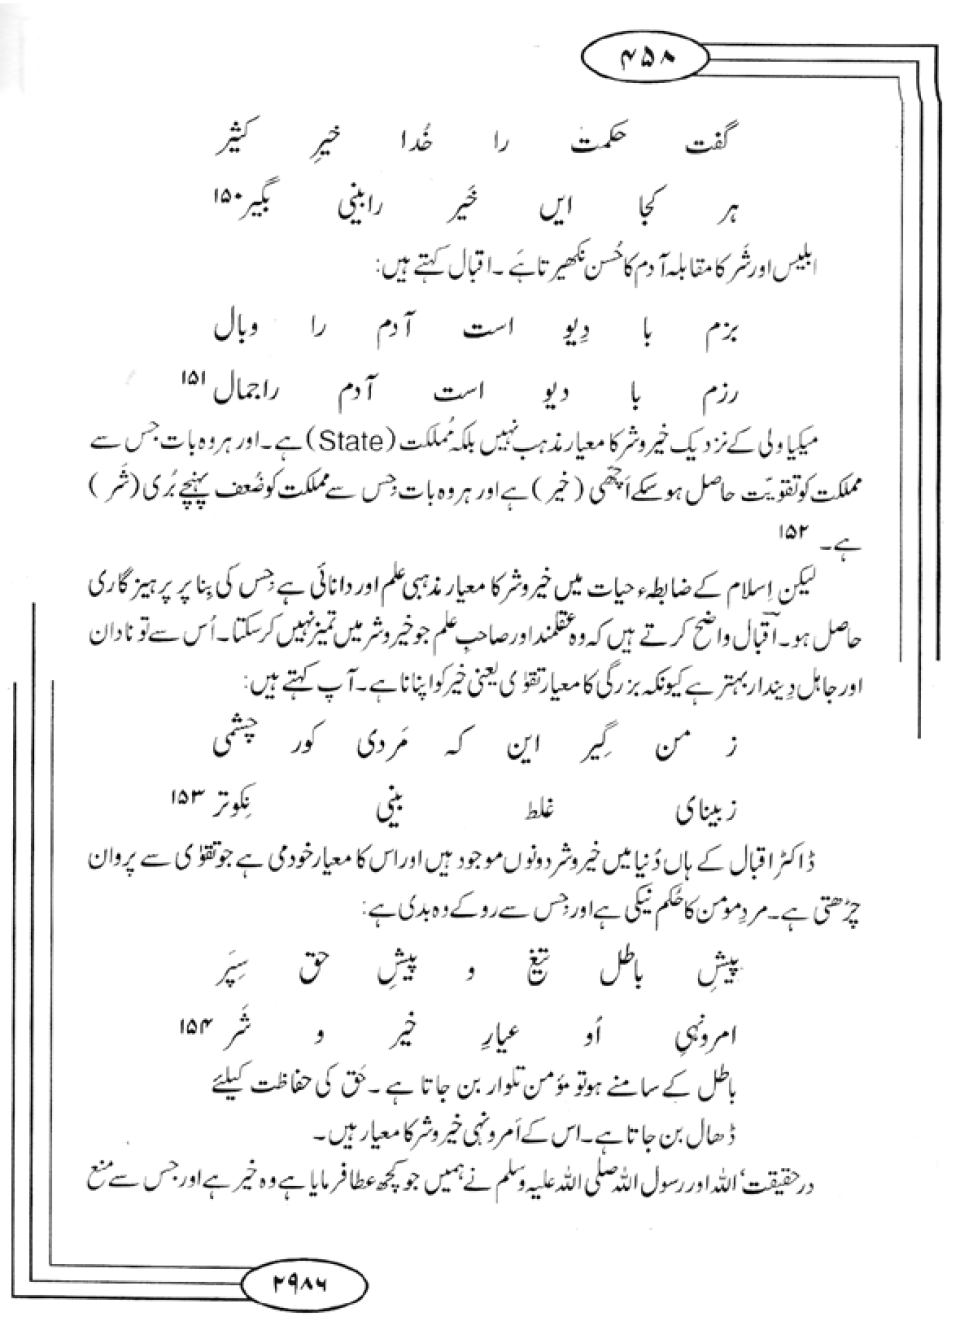 ۴۵۸
گفت حکمت را خُدا خیرِ کثیر
ہر کجا ایں خَیر رابینی بگیر ۱۵۰
ابلیس اور شَر کا مقابلہ آدم کا حُسن نکھیر تا ہَے ۔ اقبال کہتے ہیں:
بزم با دِیو است آدم را وبال
رزم با دیو است آدم راجمال ۱۵۱
میکیاولی کے نزدیک خیر وشر کا معیار مذہب نہیں بلکہ مُملکت (State) ہے۔ اور ہر وہ بات جس سے
مملکت کو تقویّت حاصل ہو سکے اچھّی (خیر) ہے اور ہر وہ بات جِس سے مملکت کو ضُعف پہنچے بُری (شَر)
ہے۔ ۱۵۲
لیکن اِسلام کے ضابطہء حیات میں خیر وشر کا معیار مذہبی علم اور دانائی ہے جِس کی بِنا پر پرہیز گاری
حاصل ہو۔ اقبالؔ واضح کرتے ہیں کہ وہ عقلمند اور صاحبِ علم جو خیر وشر میں تمیز نہیں کر سکتا۔ اُس سے تو نادان
اور جاہل دِیندار بہتر ہے کیونکہ بزرگی کا معیار تقوٰی یعنی خیر کو اپنانا ہے۔ آپ کہتے ہیں:
ز من گِیر این کہ مَردی کور چشمی
زبینای غلط بینی نِکوتر ۱۵۳
ڈاکٹر اقبال کے ہاں دُنیا میں خیر وشر دونوں موجود ہیں اور اس کا معیار خودمی ہے جو تقوٰی سے پروان
چڑھتی ہے۔ مردِ مومن کا حُکم نیکی ہے اور جِس سے روکے وہ بدی ہے:
پیشِ باطل تیغ و پیشِ حق سِپَر
امرونہیِ اُو عیارِ خیر و شَر ۱۵۴
باطل کے سامنے ہو تو مؤمن تلوار بن جاتا ہے ۔ حَق کی حفاظت کیلئے
ڈھال بن جاتا ہے۔ اس کے اَمرونہی خیر وشر کا معیار ہیں۔
در حقیقت، اللہ اور رسول اللہ صلی اللہ علیہ وسلم نے ہمیں جو کچھ عطا فرمایا ہے وہ خیر ہے اور جس سے منع
۲۹۸۶